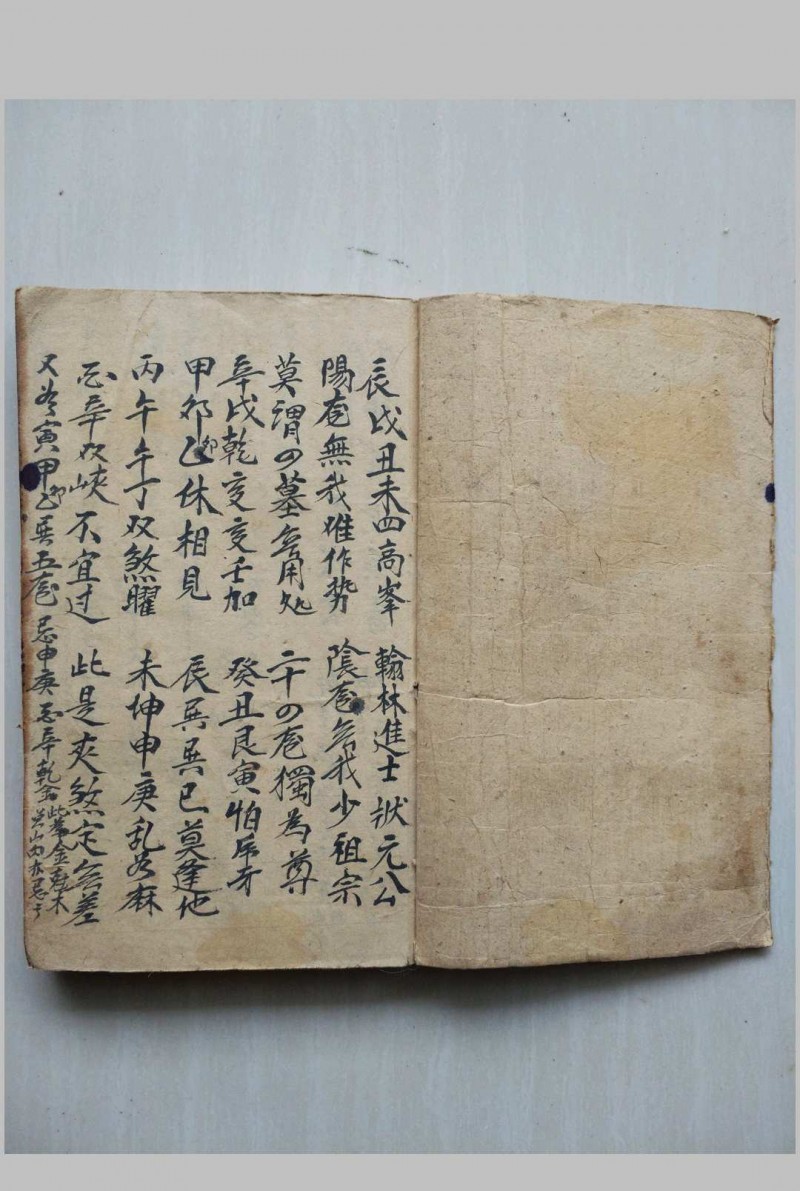 辰戌丑未四高峯 翰林進士狀元公
陽宅無我难作势 陰宅無我少祖宗
莫謂四墓無用处 二十四宅獨為尊
辛戌乾亥亥壬加 癸丑艮寅怕
甲卯乙卯休相見 辰巽巽巳莫逢他
丙午午丁双煞曜 未坤申庚乱如麻
酉辛双峽不宜过 此是夾煞定無差
又為寅甲卯乙巽五宅 忌申庚酉辛乾金 此為金克木